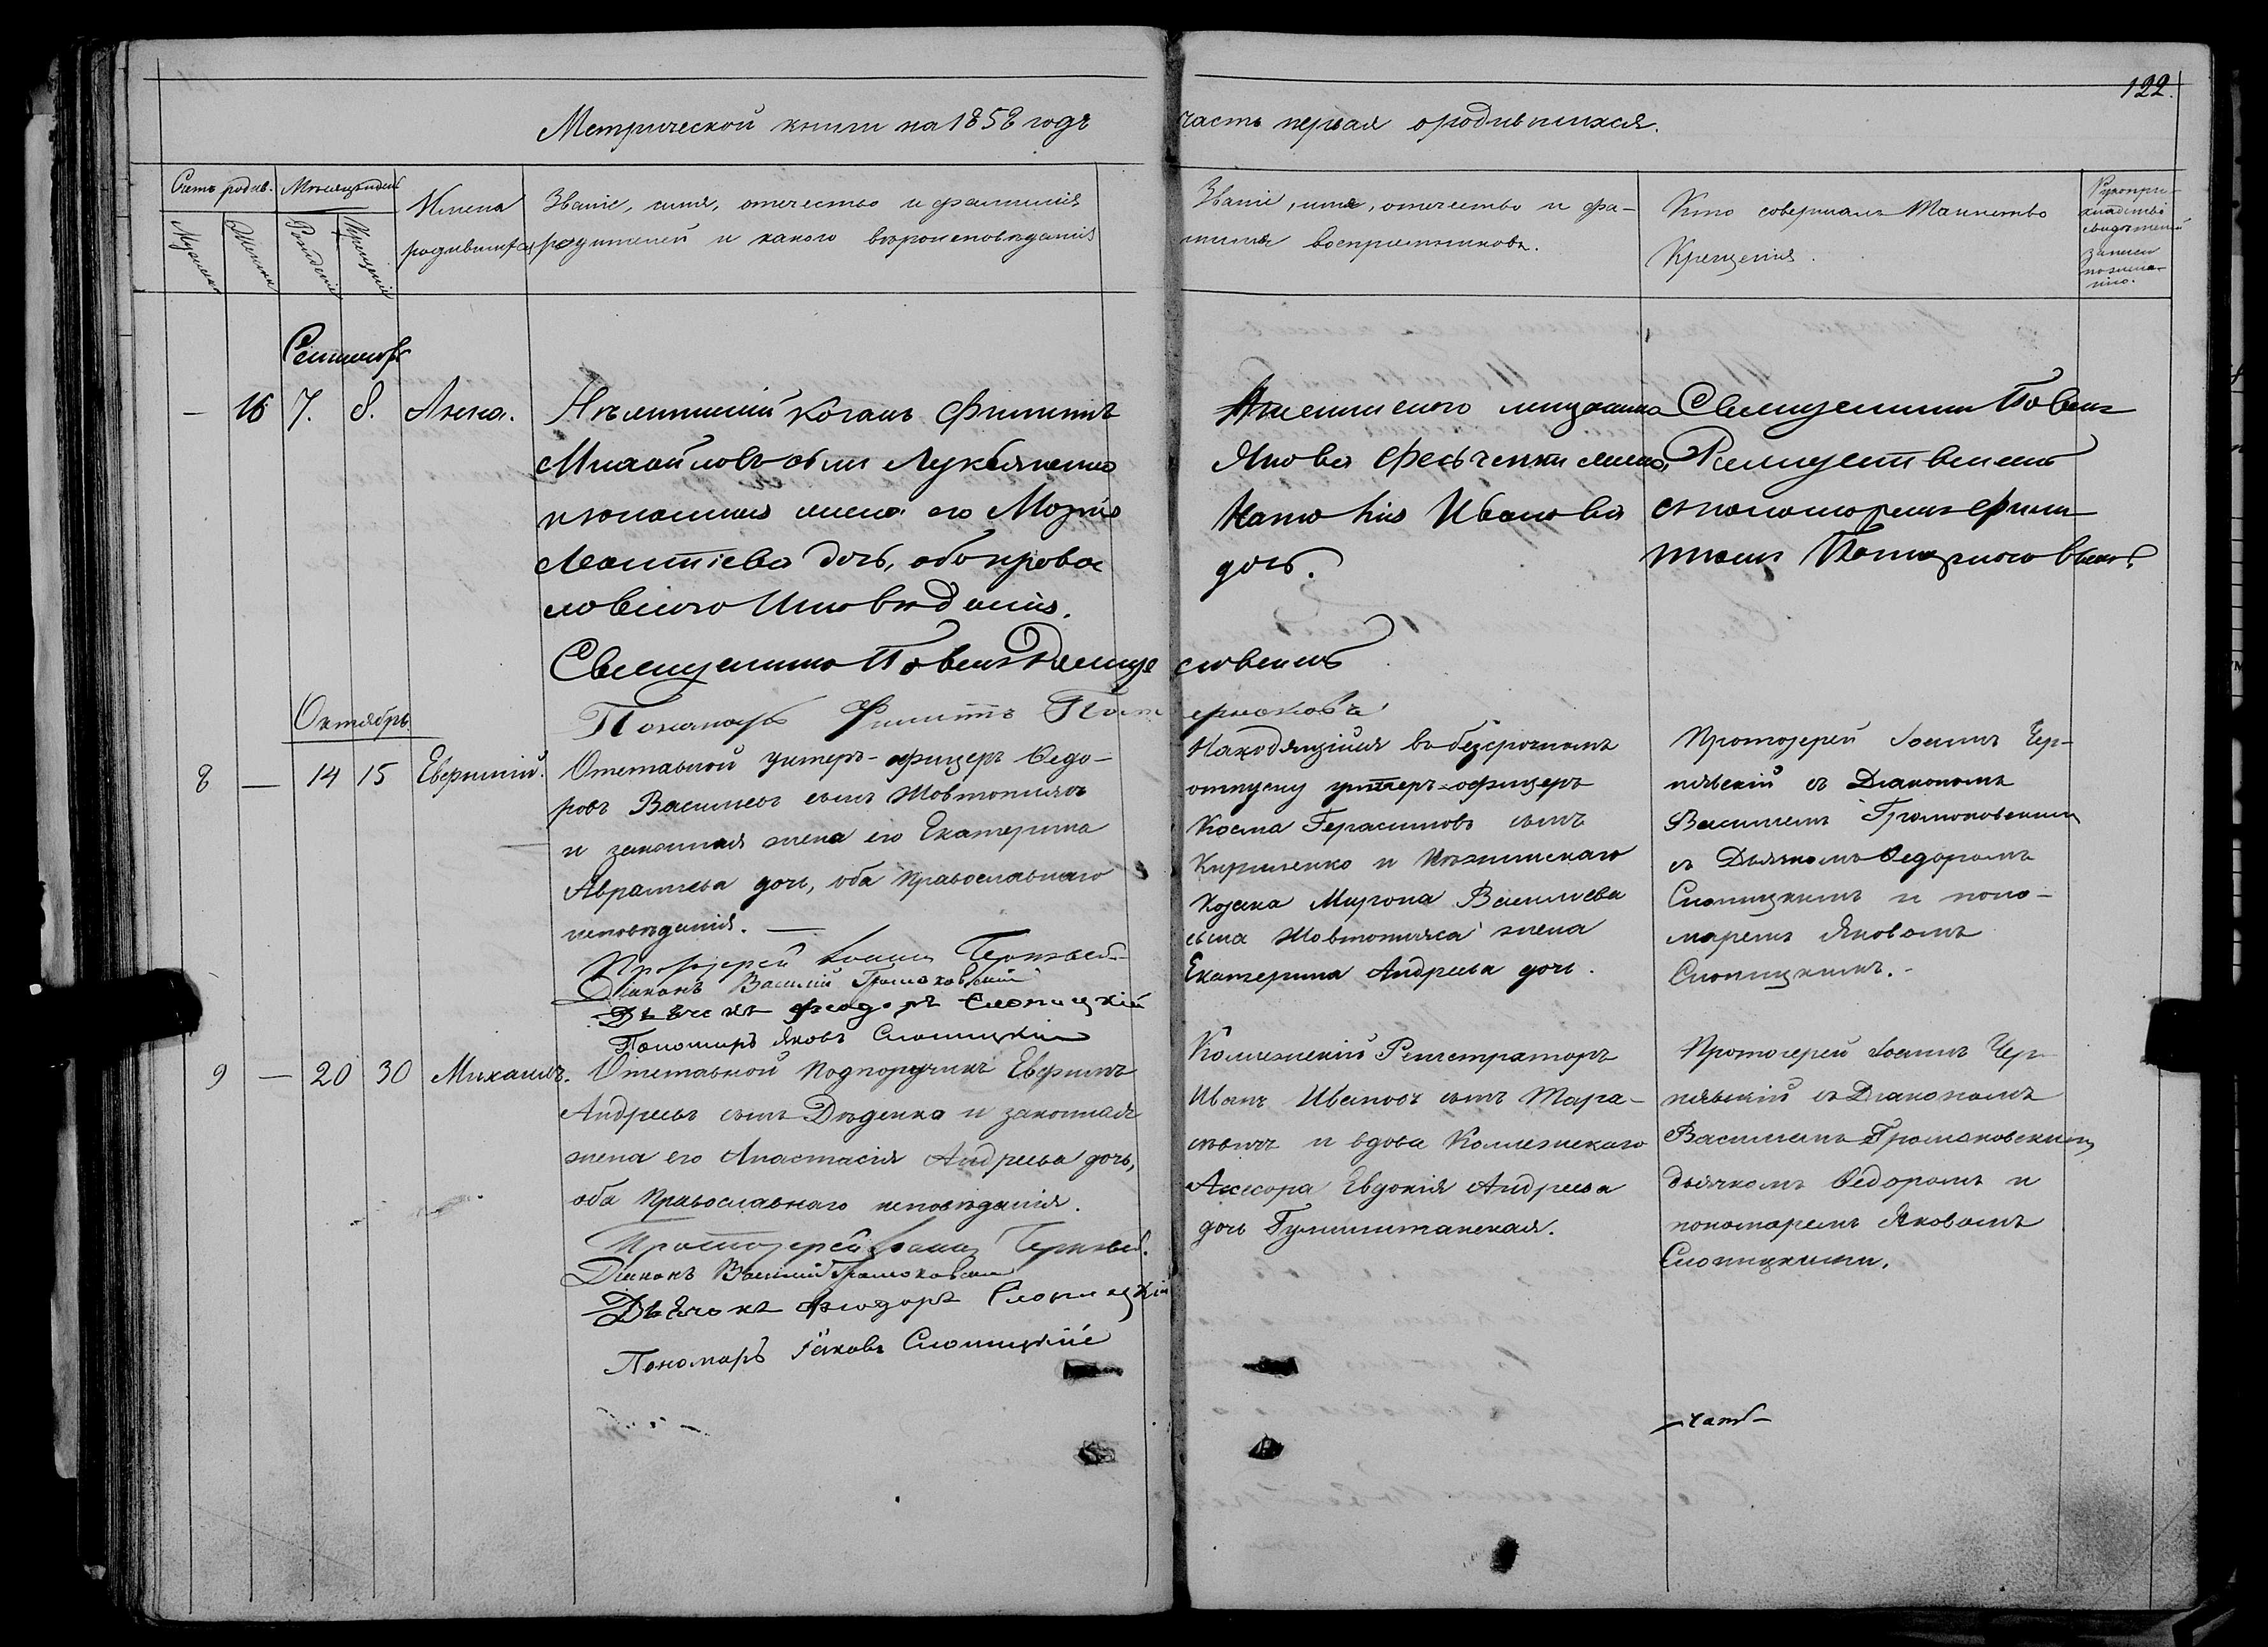 122.
Метрической книги на 1858 годъ
часть первая о родившихся.
Счетъ родив.
Мужеска
Женска
Мѣсяцъ и день
Рожденія
Крещенія
Имена
родившихся
Званіе, имя, отчество и фамилія
родителей и какого вѣроисповѣданія
Званіе, имя, отчество и фа-
милія воспріемниковъ.
Кто совершалъ Таинство
Крещенія.
Рукопри-
кладство
свидѣтелей
записи
по жела-
нію.
Сентябрь
— 16 7. 8. Анна.
Нѣжинскій козакъ Филиппъ
Михайловъ сынъ Лукьяненко
и законная жена его Марія
Леонтіева дочь, оба право
славнаго Исповѣданія.
Священникъ Павелъ Рождественскій
Пономарь Филиппъ
Нѣжинскаго мѣщанина
Якова Федченки жена
Наталія Иванова
дочь.
Священникъ Павелъ
Рождественскій
съ пономаремъ Фили
ппомъ
Октябрь.
8 — 14 15 Евфимій.
Отставной унтеръ-офицеръ Федо-
ровъ Васильевъ сынъ Шовтопляс
и законная жена его Екатерина
Авраміева дочь, оба Православнаго
исповѣданія. —
Протоіерей Іоаннъ Чернявскій
Діаконъ Василій Громоковскій
Дьячекъ Феодоръ Слопицкій
Пономарь Яковъ Слопицкій
Находящійся въ безсрочномъ
отпуску унтеръ-офицеръ
Косма Герасимовъ сынъ
Кириленко и Нѣжинскаго
Козака Мирона Васильева
сына Шовтопляса жена
Екатерина Андреева дочь.
Протоіерей Іоаннъ Чер-
нявскій съ Діакономъ
Василіемъ Громоковскимъ
съ Дьячкомъ Федоромъ
Слопицкимъ и поно-
маремъ Яковомъ
Слопицкимъ. -
9 — 20 30 Михаилъ.
Отставной Подпоручикъ Евфимъ
Андреевъ сынъ Дѣденко и законная
жена его Анастасія Андреева дочь,
оба Православнаго исповѣданія.
Протоіерей Іоаннъ Чернявскій.
Діаконъ Василій Громоковскій
Дьячекъ Феодоръ Слопицкій
Пономарь Іаковъ Слопицкій
Коллежскій Регистраторъ
Иванъ Ивановъ сынъ Тара-
севичъ и вдова Коллежскаго
Асесора Евдокія Андреева
дочь
Протоіерей Іоаннъ Чер-
нявскій съ Діакономъ
Василіемъ Громоковскимъ
дьячкомъ Федоромъ и
пономаремъ Яковомъ
Слопицкими.